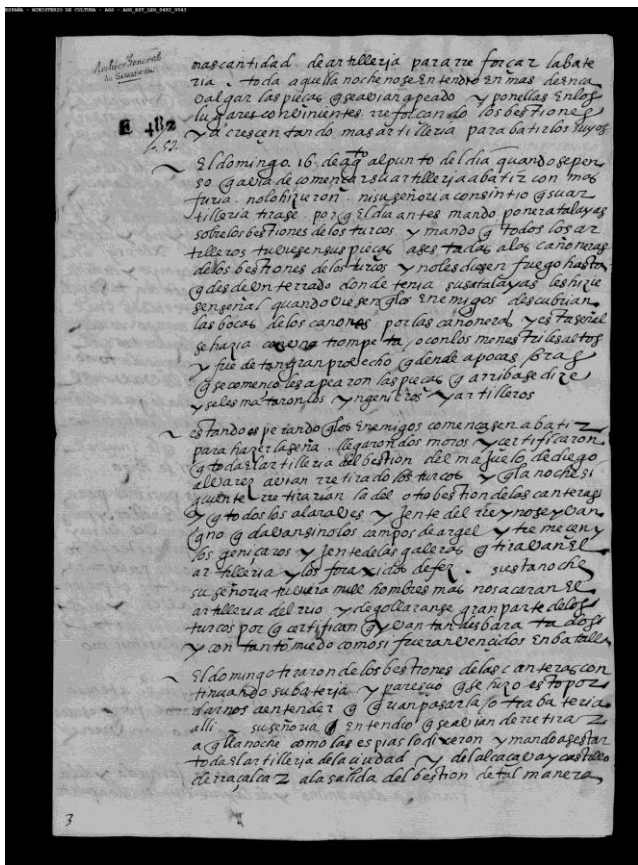 ESPAÑA - MINISTERIO DE CULTURA - AGS - AGS_EST_LEG_0482_0043
Archivo General
de Simancas
E 482
mas cantidad de artilleria para rre forcar la bate
ria . toda aquella noche no se entendio en mas de enca
valgar las pieças q se avian apeado y ponellas en los
lugares convinientes rre forcando los bestiones
y a crescentando mas artilleria para batir los suyos
El domingo . 16. de agto al punto del dia quando se pen
so q avia de començar su artilleria a batir con mas
furia . no lo hizieron ni su señoria consintio q su ar
tilleria tirase . por q el dia antes mando poner atalayas
sobre los bestiones de los turcos y mando q todos los ar
tilleros tuviesen sus pieças asestadas a las cañoneras
de los bestiones de los turcos y no les diesen fuego hasta
q desde un terrado donde tenia sus atalayas les hizie
sen señal quando viesen q los enemigos descubrian
las bocas de los canones por las cañoneras y esta señal
se hazia con una trompeta / o con los menestriles altos
y fue de tan gran provecho q dende a pocas oras
q se començo les apearon las pieças q arriba se dize
y se les mataron los yngenieros y artilleros
estando esperando q los enemigos començasen a batir
para hazer la seña . llegaron dos moros y certificaron
q toda el artilleria del bestion del majuelo de diego
alvarez avian rretirado los turcos y q la noche si
guiente rretirarian la del otro bestion de las canteras
y q todos los alaraves y jente del rrey nos e yvan
q no q davan sino los campos de argel y tremecen y
los geniçaros y jente de las galeras q tiravan el
artilleria y los foraxidos de fez . si esta noche
su señoria tuviera mill hombres mas no sacaran el
artilleria del rio y degollaranse gran parte de los
turcos por q certifican q yvan tan desbaratados
y con tanto miedo como si fueran vencidos en batalla
El domingo tiraron de los bestiones de las canteras con
tinuando su bateria y parescio q se hizo esto por
darnos a entender q querian pasar la otra bateria
alli . su señoria entendio q se avian de rretirar
aquella noche como las espias lo dixeron y mando asestar
toda el artilleria de la ciudad y del alcaçava y castillo
de rraçalcaz a la salida del bestion de tal manera
3